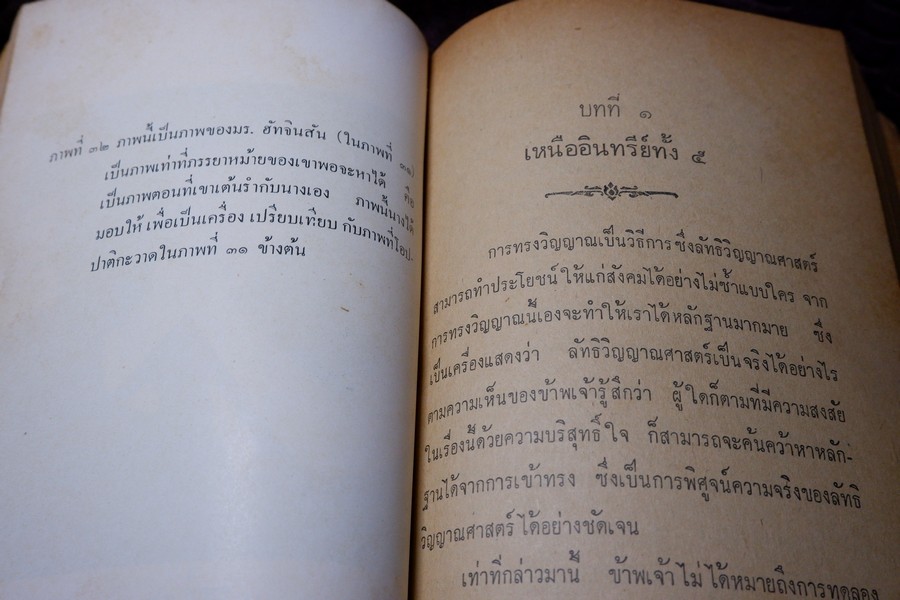 ภาพที่ ๓๒ ภาพนี้เป็นภาพของมร. ฮัทจินสัน (ในภาพที่ ๓๑)
เป็นภาพเท่าที่ภรรยาหม้ายของเขาพอจะหาได้ คือ
เป็นภาพตอนที่เขาเต้นรำกับนางเอง ภาพนี้นางได้
มอบให้ เพื่อเป็นเครื่อง เปรียบเทียบ กับภาพที่โอป-
ปาติกะวาดในภาพที่ ๓๑ ข้างต้น
บทที่ ๑
เหนืออินทรีย์ทั้ง ๕
การทรงวิญญาณเป็นวิธีการ ซึ่งลัทธิวิญญาณศาสตร์
สามารถทำประโยชน์ ให้แก่สังคมได้อย่างไม่ซ้ำแบบใคร จาก
การทรงวิญญาณนี้เองจะทำให้เราได้หลักฐานมากมาย ซึ่ง
เป็นเครื่องแสดงว่า ลัทธิวิญญาณศาสตร์เป็นจริงได้อย่างไร
ตามความเห็นของข้าพเจ้ารู้สึกว่า ผู้ใดก็ตามที่มีความสงสัย
ในเรื่องนี้ด้วยความบริสุทธิ์ใจ ก็สามารถจะค้นคว้าหาหลัก-
ฐานได้จากการเข้าทรง ซึ่งเป็นการพิศูจน์ความจริงของลัทธิ
วิญญาณศาสตร์ ได้อย่างชัดเจน
เท่าที่กล่าวมานี้ ข้าพเจ้า ไม่ ได้หมายถึงการทดลอง